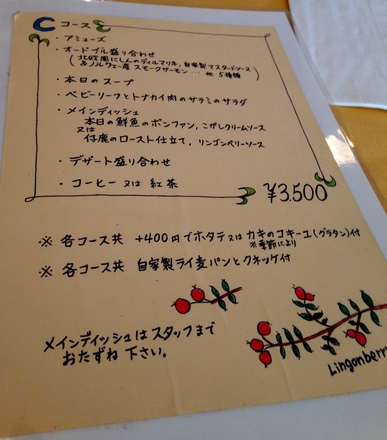 Cコース
・アミューズ
・オードブル盛り合わせ
(北欧風にしんのディルマリネ, 自家製マスタードソース
&ノルウェー産 スモークサーモン... 他 5種類)
・本日のスープ
・ベビーリーフとトナカイ肉のサラミのサラダ
・メインディッシュ
本日の鮮魚のポンファン, こがしクリームソース
又は
仔鹿のロースト仕立て, リンゴンベリーソース
・デザート盛り合わせ
・コーヒー 又は 紅茶
¥3.500
※ 各コース共 +400円でホタテ又はカキのコキーユ(グラタン)付
※季節により
※ 各コース共 自家製ライ麦パンとクネッケ付
メインディッシュはスタッフまで
おたずね下さい。
Lingonberry